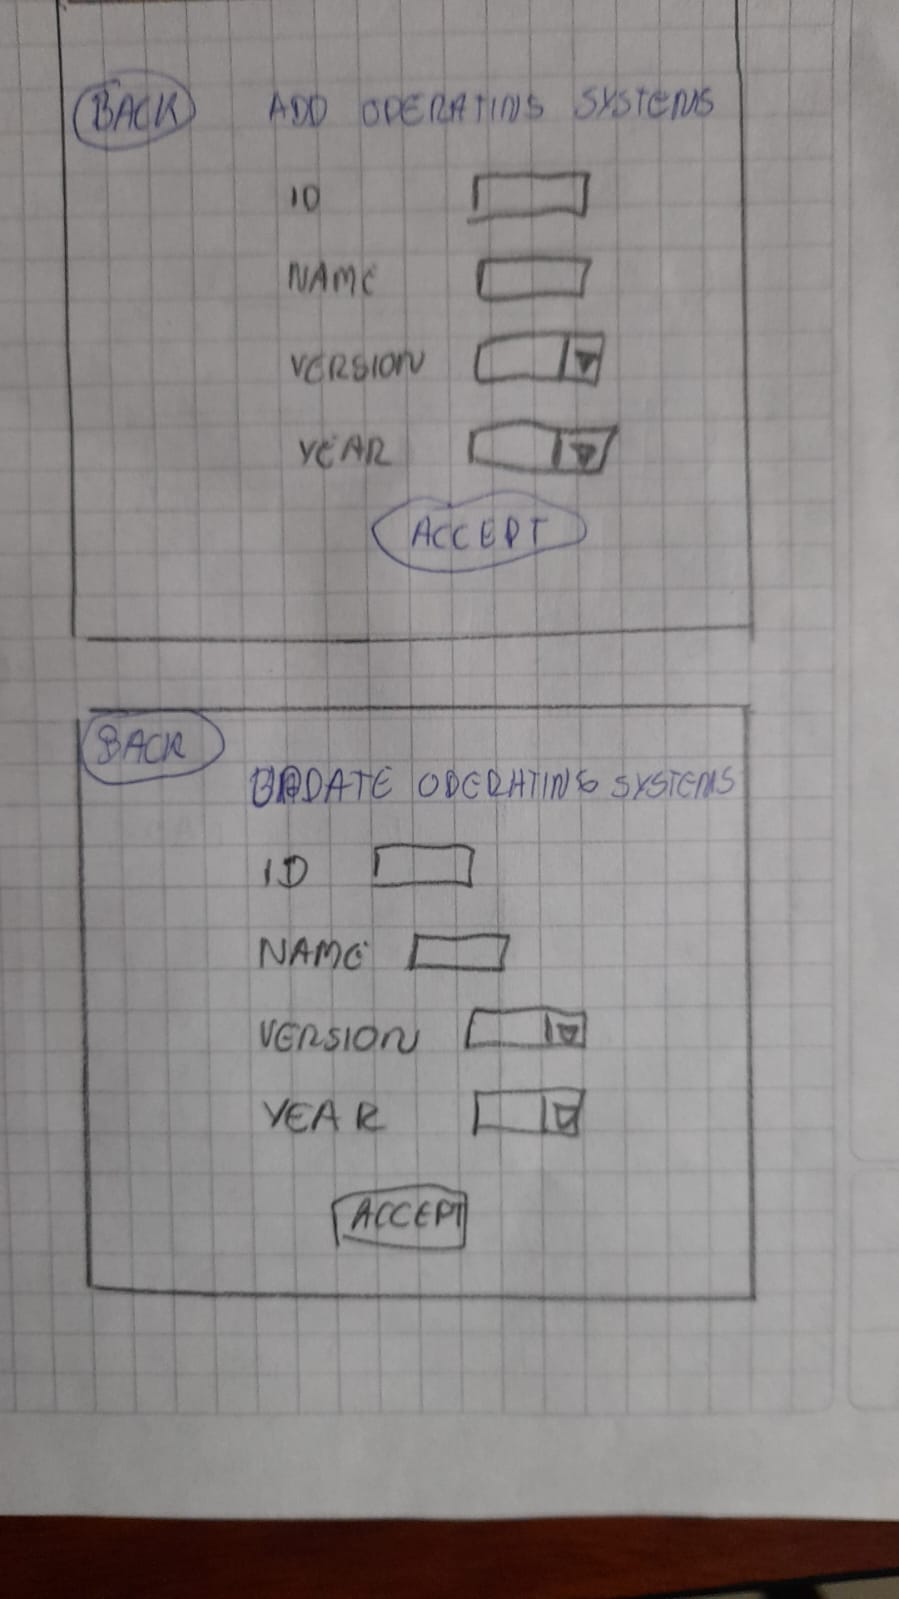 BACK ADD OPERATING SYSTEMS
ID
NAME
VERSION
YEAR
ACCEPT
BACK
UPDATE OPERATING SYSTEMS
ID
NAME
VERSION
YEAR
ACCEPT